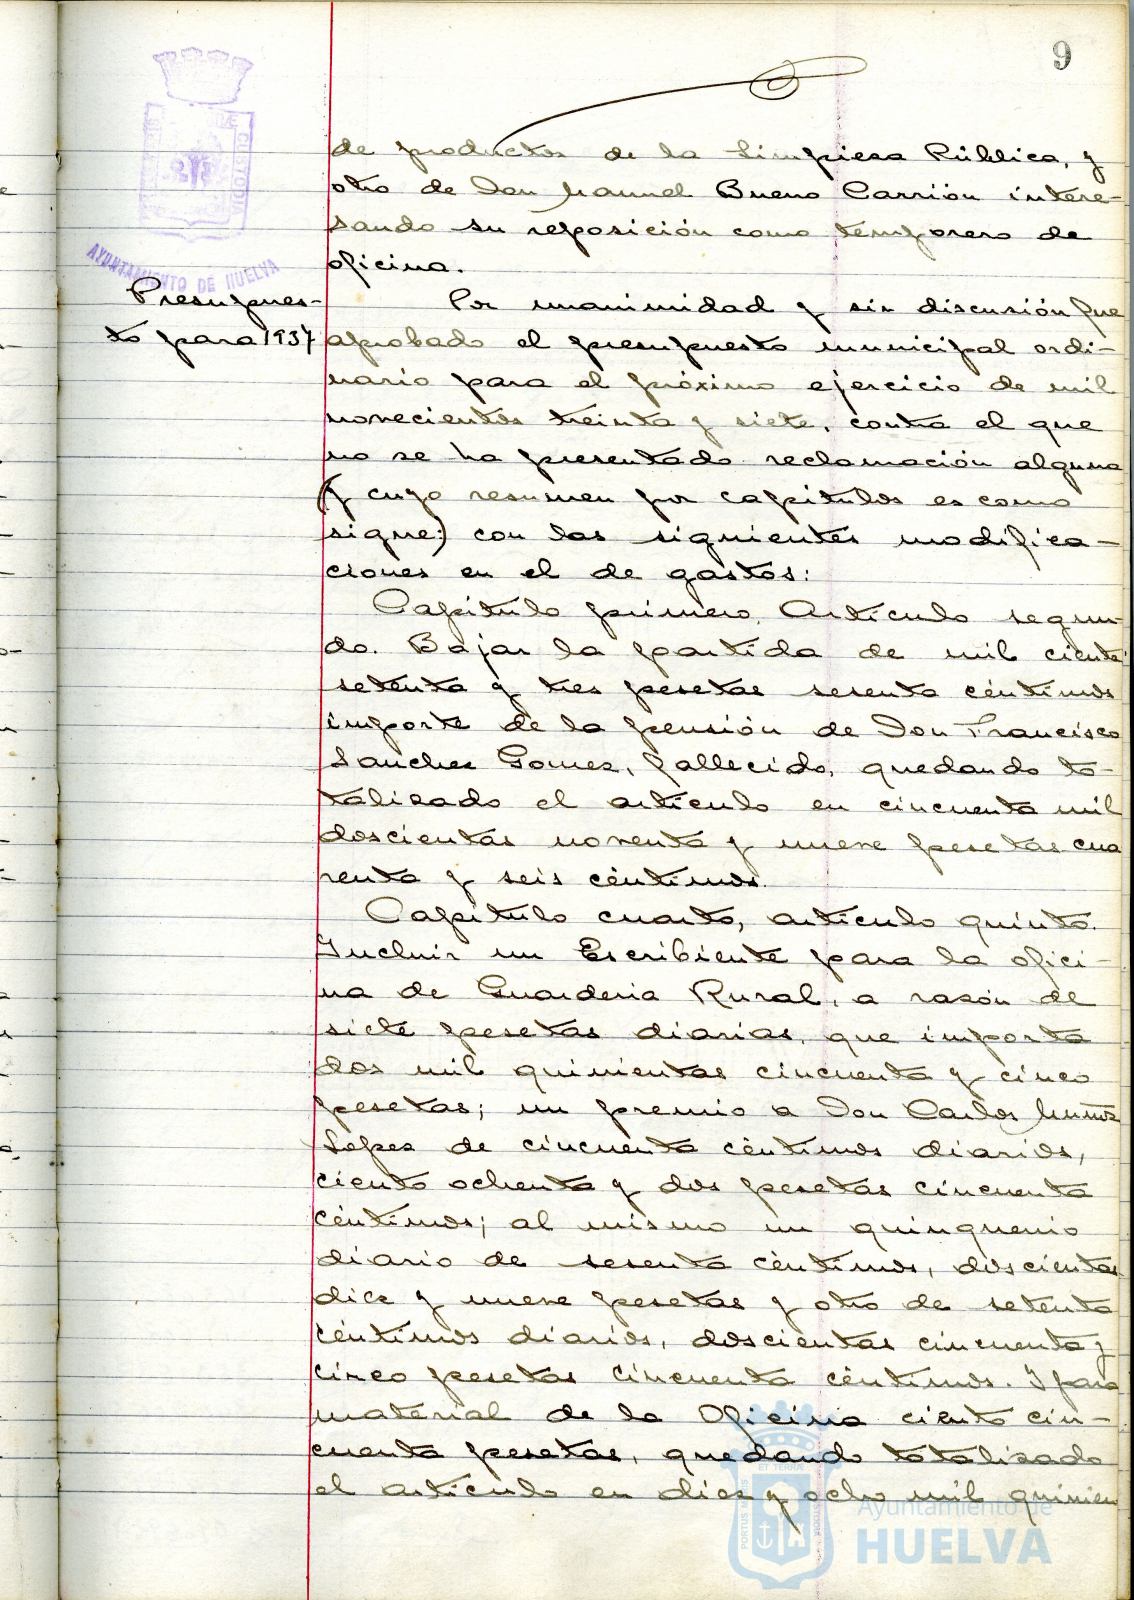 9
de productos de la Limpieza Pública, y
otro de Don Manuel Bueno Carrión intere-
sando su reposición como temporero de
oficina.
AYUNTAMIENTO DE HUELVA
CUSTODIA
Presupues-
to para 1937
Por unanimidad y sin discusión fue
aprobado el presupuesto municipal ordi-
nario para el próximo ejercicio de mil
novecientos treinta y siete, contra el que
no se ha presentado reclamación alguna
(y cuyo resumen por capítulos es como
sigue:) con las siguientes modifica-
ciones en el de gastos:
Capítulo primero, Artículo segun-
do. Bajar la partida de mil ciento
setenta y tres pesetas sesenta céntimos
importe de la pensión de Don Francisco
Sanchez Gomez, fallecido, quedando to-
talizado el artículo en cincuenta mil
doscientas noventa y nueve pesetas cua
renta y seis céntimos.
Capítulo cuarto, artículo quinto.
Incluir un Escribiente para la ofici-
na de Guardería Rural, a razón de
siete pesetas diarias, que importa
dos mil quinientas cincuenta y cinco
pesetas; un premio a Don Carlos Muñoz
Lopez de cincuenta céntimos diarios,
ciento ochenta y dos pesetas cincuenta
céntimos; al mismo un quinquenio
diario de sesenta céntimos, doscientas
diez y nueve pesetas y otro de setenta
céntimos diarios, doscientas cincuenta y
cinco pesetas cincuenta céntimos. Y para
material de la Oficina ciento cin-
cuenta pesetas, quedando totalizado
el artículo en diez y ocho mil quinien
Ayuntamiento de
HUELVA